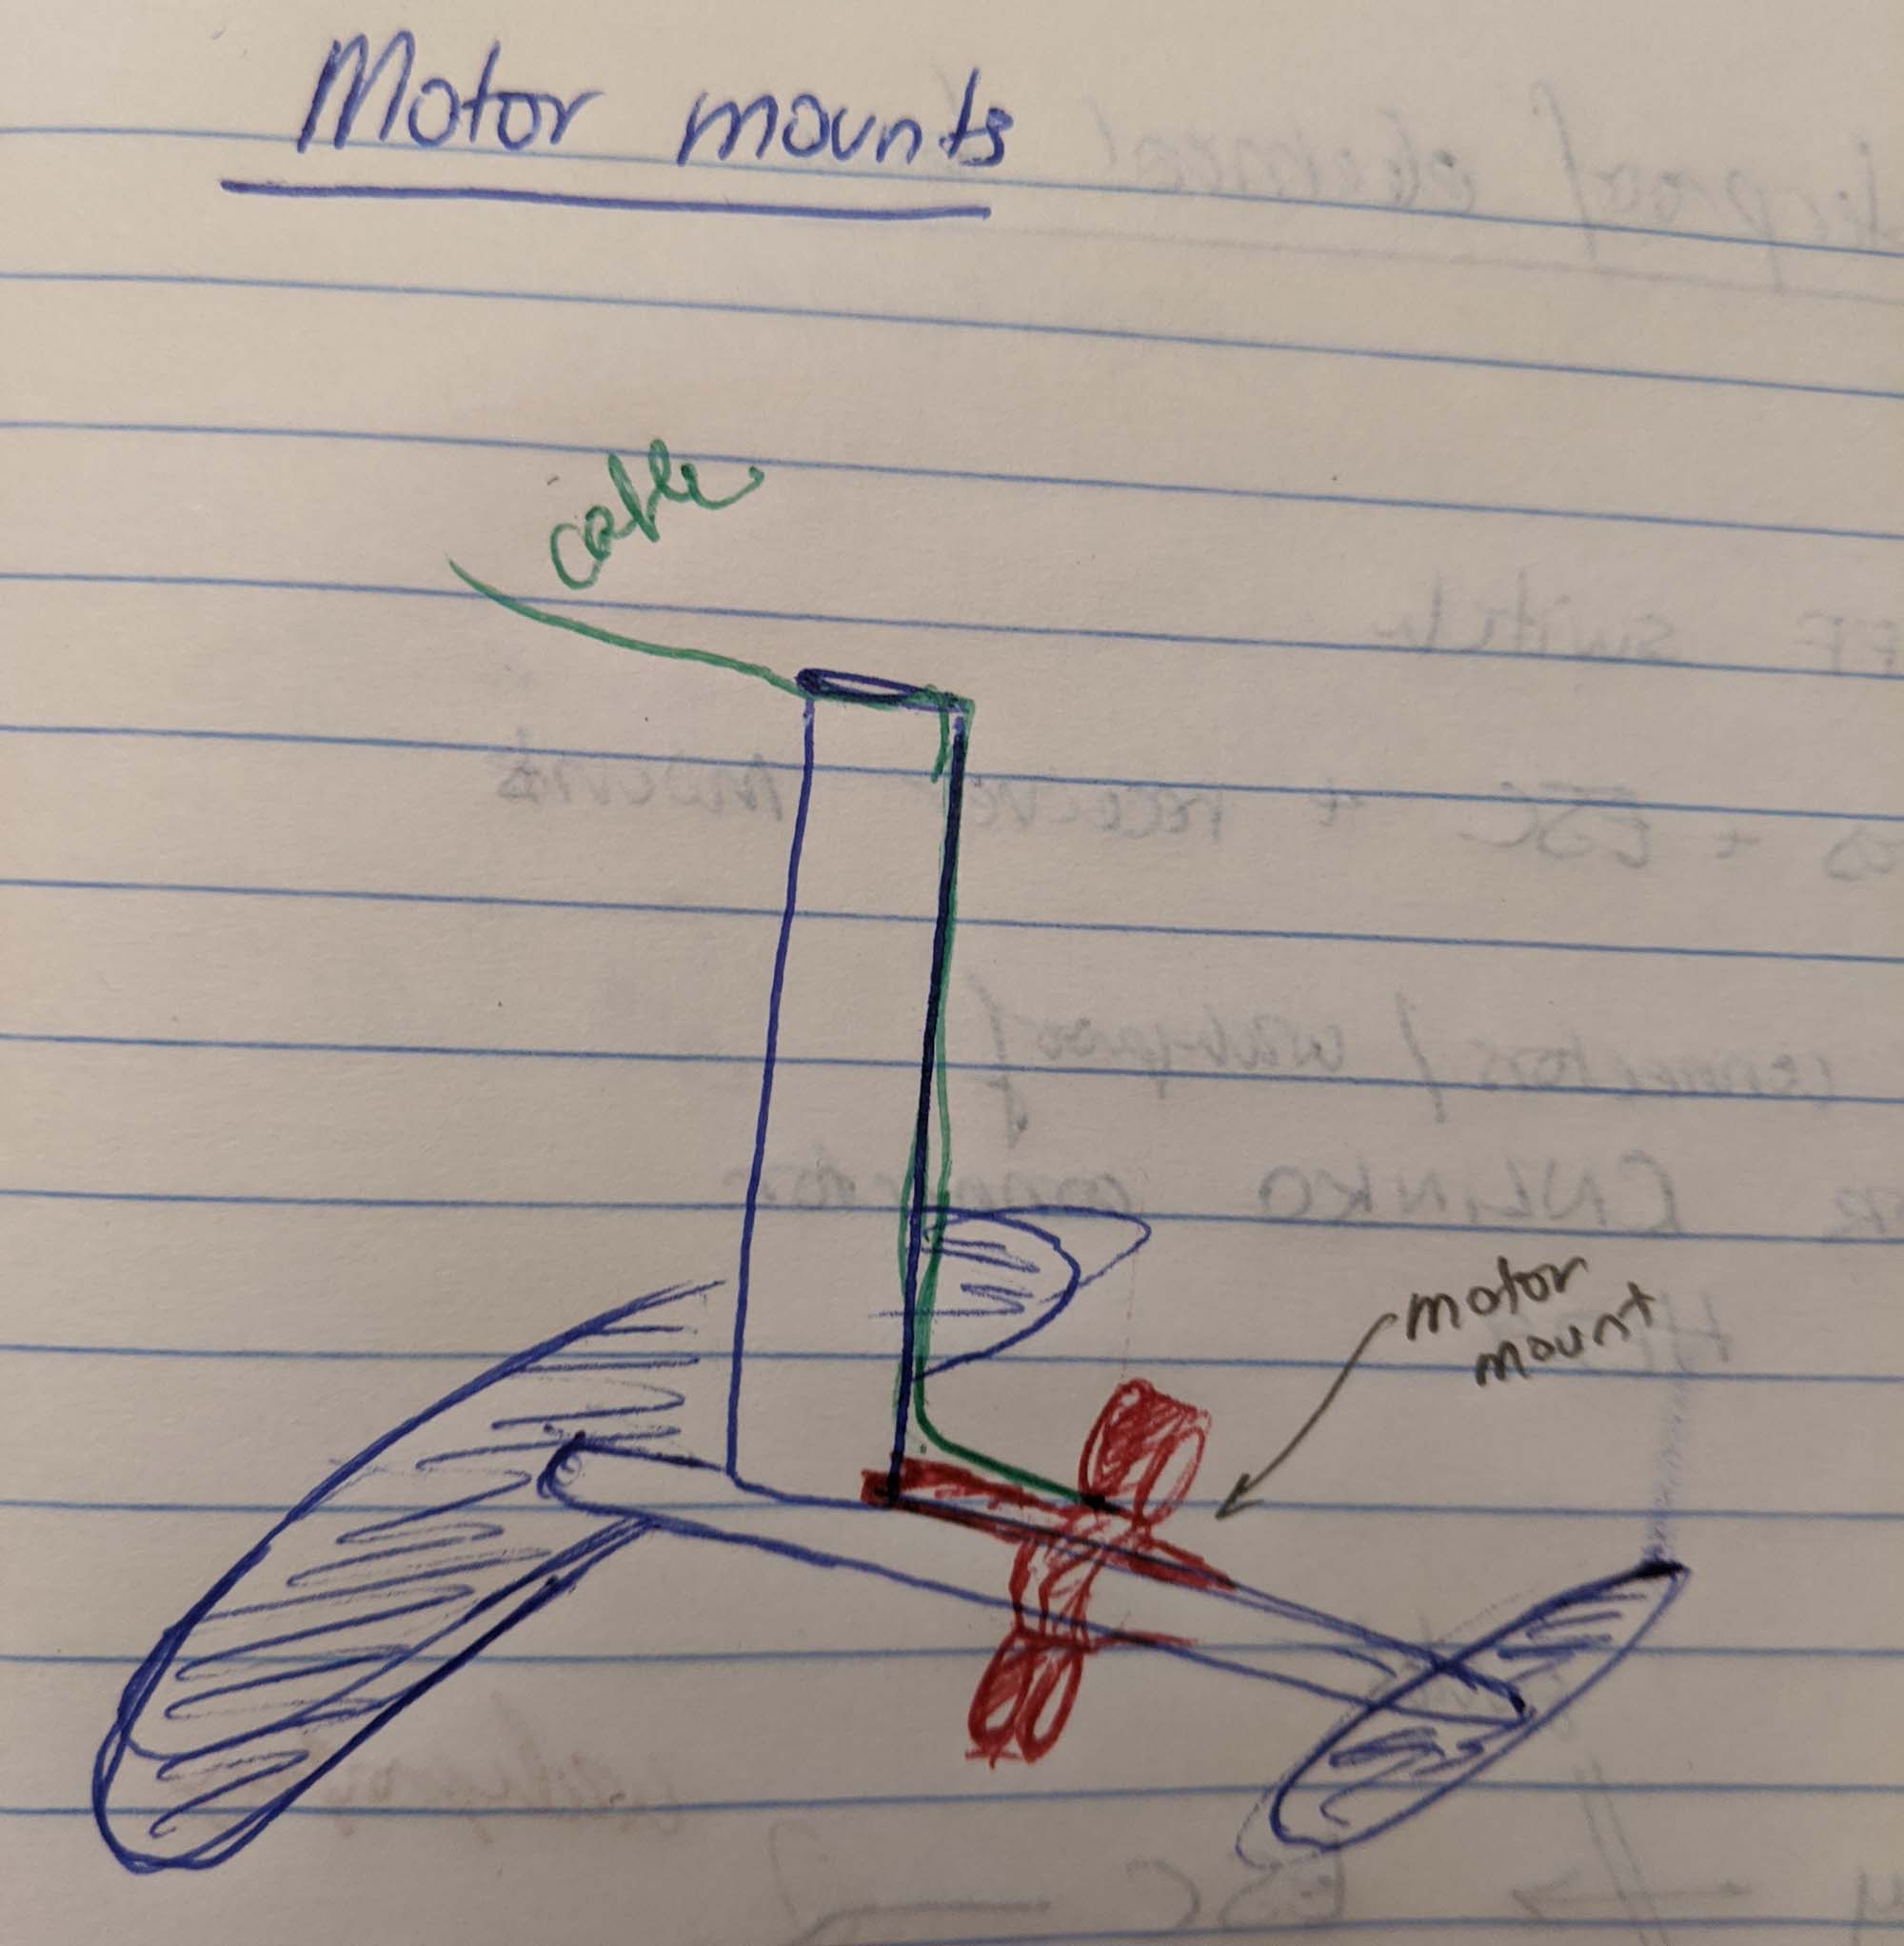 Motor mounts
cable
motor
mount